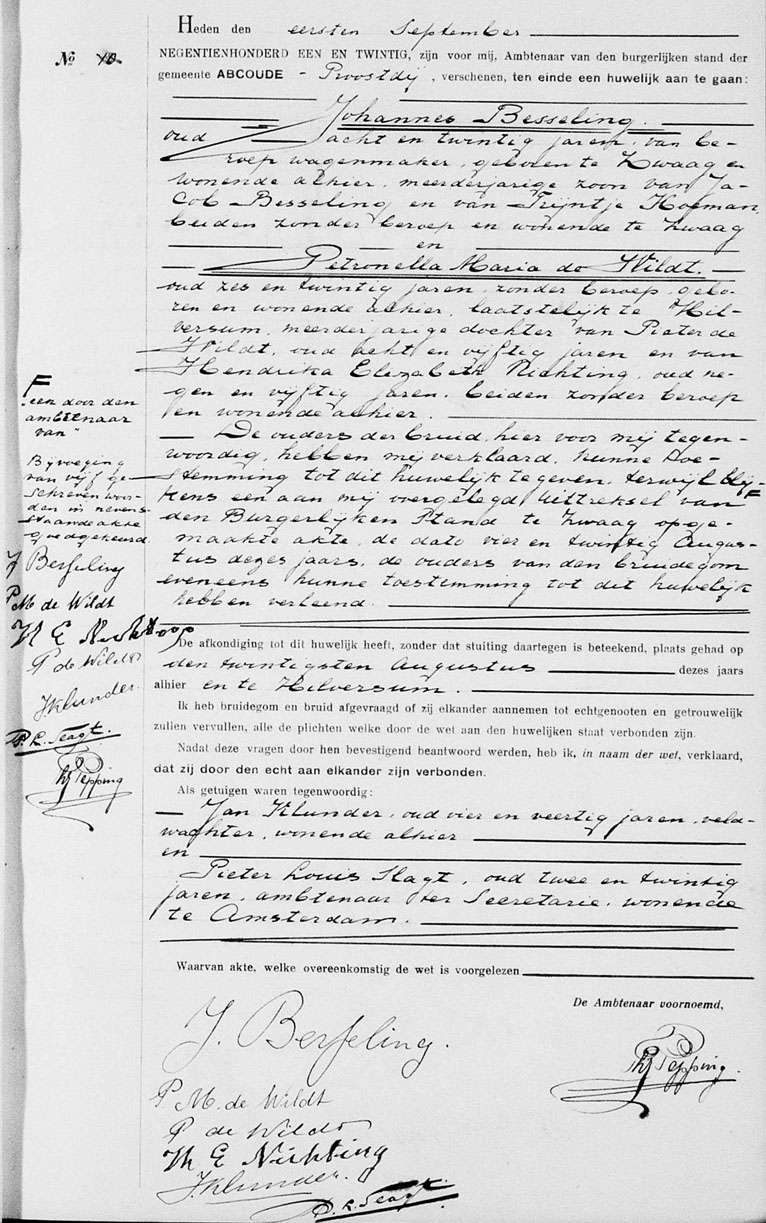 Heden den eersten September
No 40.
NEGENTIENHONDERD EEN EN TWINTIG, zijn voor mij, Ambtenaar van den burgerlijken stand der
gemeente ABCOUDE - Proostdij, verschenen, ten einde een huwelijk aan te gaan:
Johannes Besseling.
oud acht en twintig jaren, van be-
roep wagenmaker, geboren te Zwaag en
wonende alhier, meerderjarige zoon van Ja-
cob Besseling en van Trijntje Koeman,
beiden zonder beroep en wonende te Zwaag
en
Petronella Maria de Wildt.
oud zes en twintig jaren, zonder beroep, gebo-
ren en wonende alhier, laatstelijk te Hil-
versum, meerderjarige dochter van Pieter de
Wildt, oud acht en vijftig jaren en van
Hendrika Elizabeth Nichting, oud ne-
gen en vijftig jaren, beiden zonder beroep
en wonende alhier.
De ouders der bruid, hier voor mij tegen-
woordig, hebben mij verklaard, hunne toe-
stemming tot dit huwelijk te geven, terwijl blij-
kens een aan mij overgelegd uittreksel van F
den Burgerlijken Stand te Zwaag opge-
maakte akte, de dato vier en twintig Augus-
tus dezes jaars, de ouders van den bruidegom
eveneens hunne toestemming tot dit huwelijk
hebben verleend.
F
"een door den
ambtenaar
van"
Bijvoeging
van vijf ge-
schreven woor-
den in nevens-
staande akte
goedgekeurd
J Besseling
P M de Wildt
P de Wildt
J Klunder
P. L. Slagt.
Pepping
De afkondiging tot dit huwelijk heeft, zonder dat stuiting daartegen is beteekend, plaats gehad op
den twintigsten Augustus dezes jaars
alhier en te Hilversum.
Ik heb bruidegom en bruid afgevraagd of zij elkander aannemen tot echtgenooten en getrouwelijk
zullen vervullen, alle de plichten welke door de wet aan den huwelijken staat verbonden zijn.
Nadat deze vragen door hen bevestigend beantwoord werden, heb ik, in naam der wet, verklaard,
dat zij door den echt aan elkander zijn verbonden.
Als getuigen waren tegenwoordig:
Jan Klunder, oud vier en veertig jaren, veld-
wachter, wonende alhier
en
Pieter Louis Slagt, oud twee en twintig
jaren, ambtenaar ter Secretarie, wonende
te Amsterdam.
Waarvan akte, welke overeenkomstig de wet is voorgelezen
De Ambtenaar voornoemd,
J. Besseling.
Pepping.
P M. de Wildt
P de Wildt
H E Nichting
J Klunder.
P. L. Slagt.